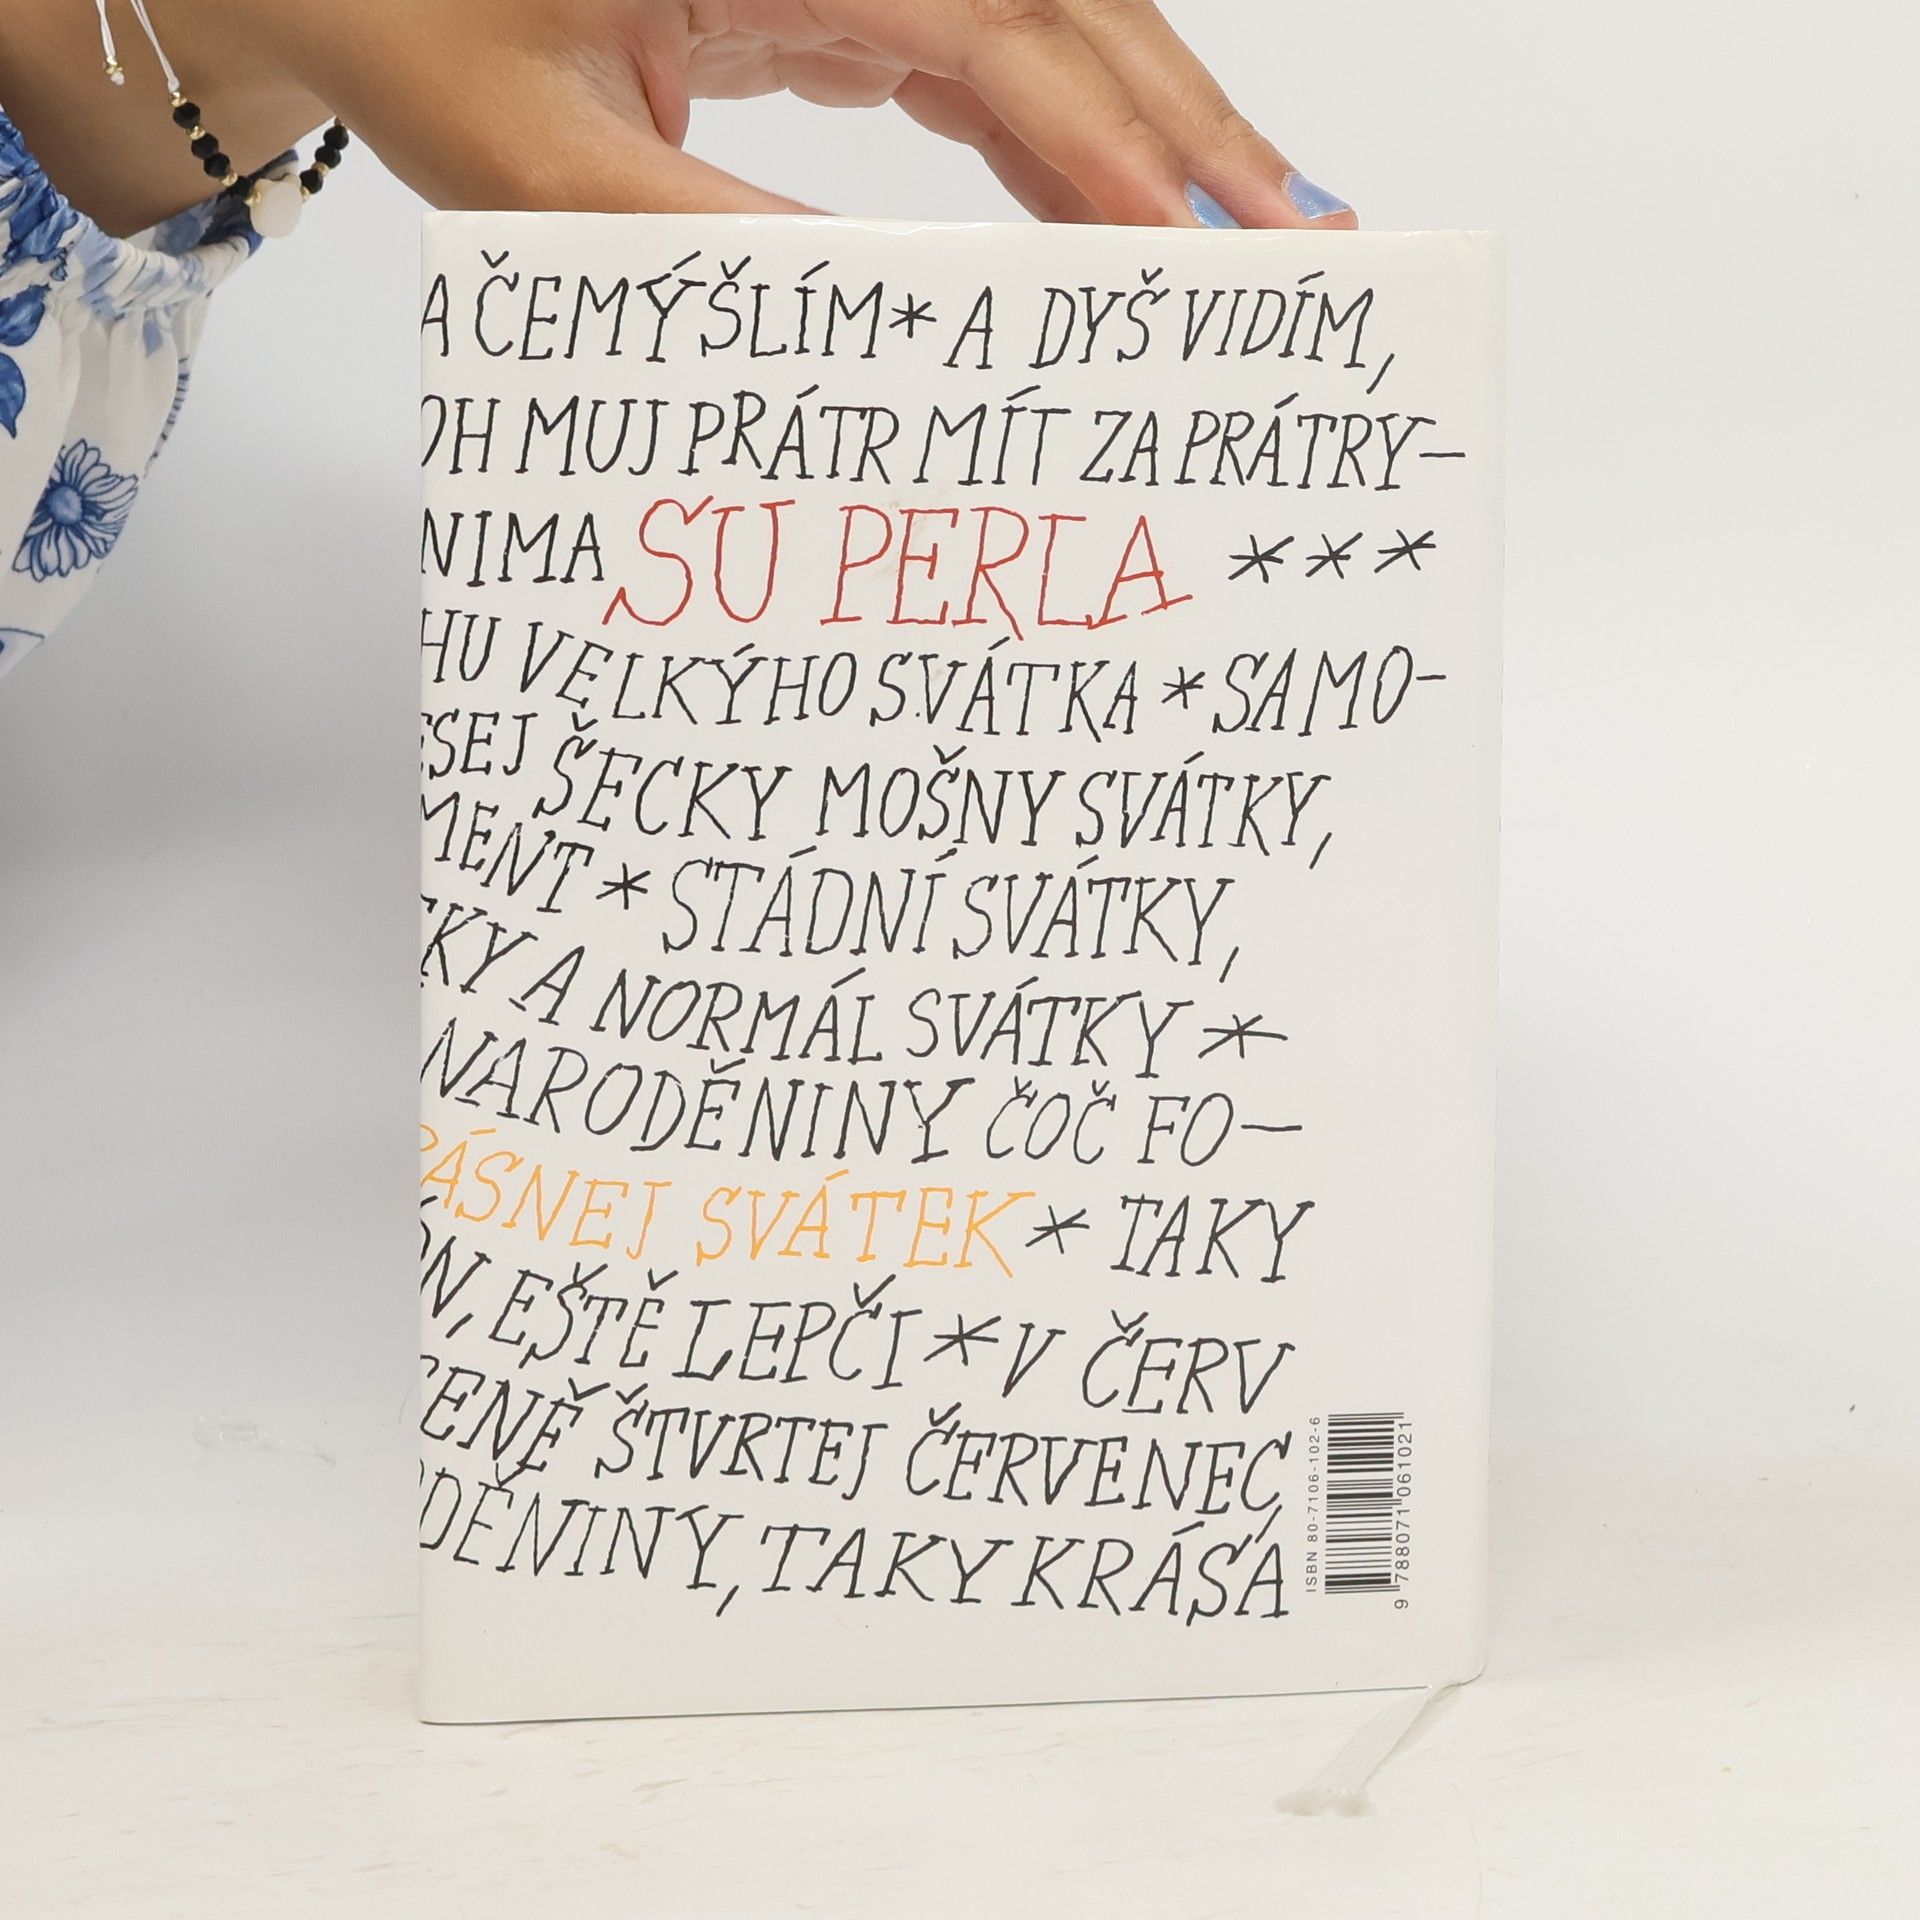 A ČEMÝŠLÍM * A DYŠ VIDÍM,
OH MUJ PRÁTR MÍT ZA PRÁTRY–
NIMA SU PERLA ***
HU VELKÝHO SVÁTKA * SAMO–
ESEJ ŠECKY MOŠNY SVÁTKY,
MENT * STÁDNÍ SVÁTKY,
KY A NORMÁL SVÁTKY *
NARODĚNINY ČOČ FO–
RÁSNEJ SVÁTEK * TAKY
N, EŠTĚ LEPČI * V ČERV
ENĚ ŠTVRTEJ ČERVENEC,
DĚNINY, TAKY KRÁSÁ
ISBN 80-7106-102-6
9 788071 061021